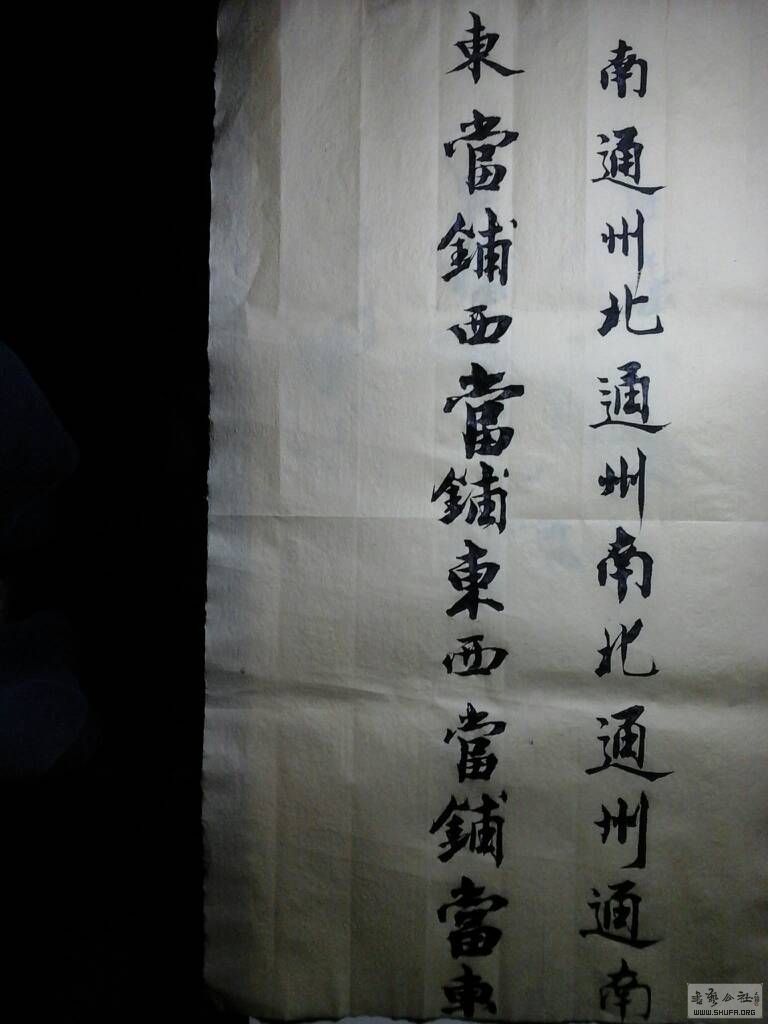 南通州北通州南北通州通南
東當鋪西當鋪東西當鋪當東
书艺公社
WWW.SHUFA.ORG